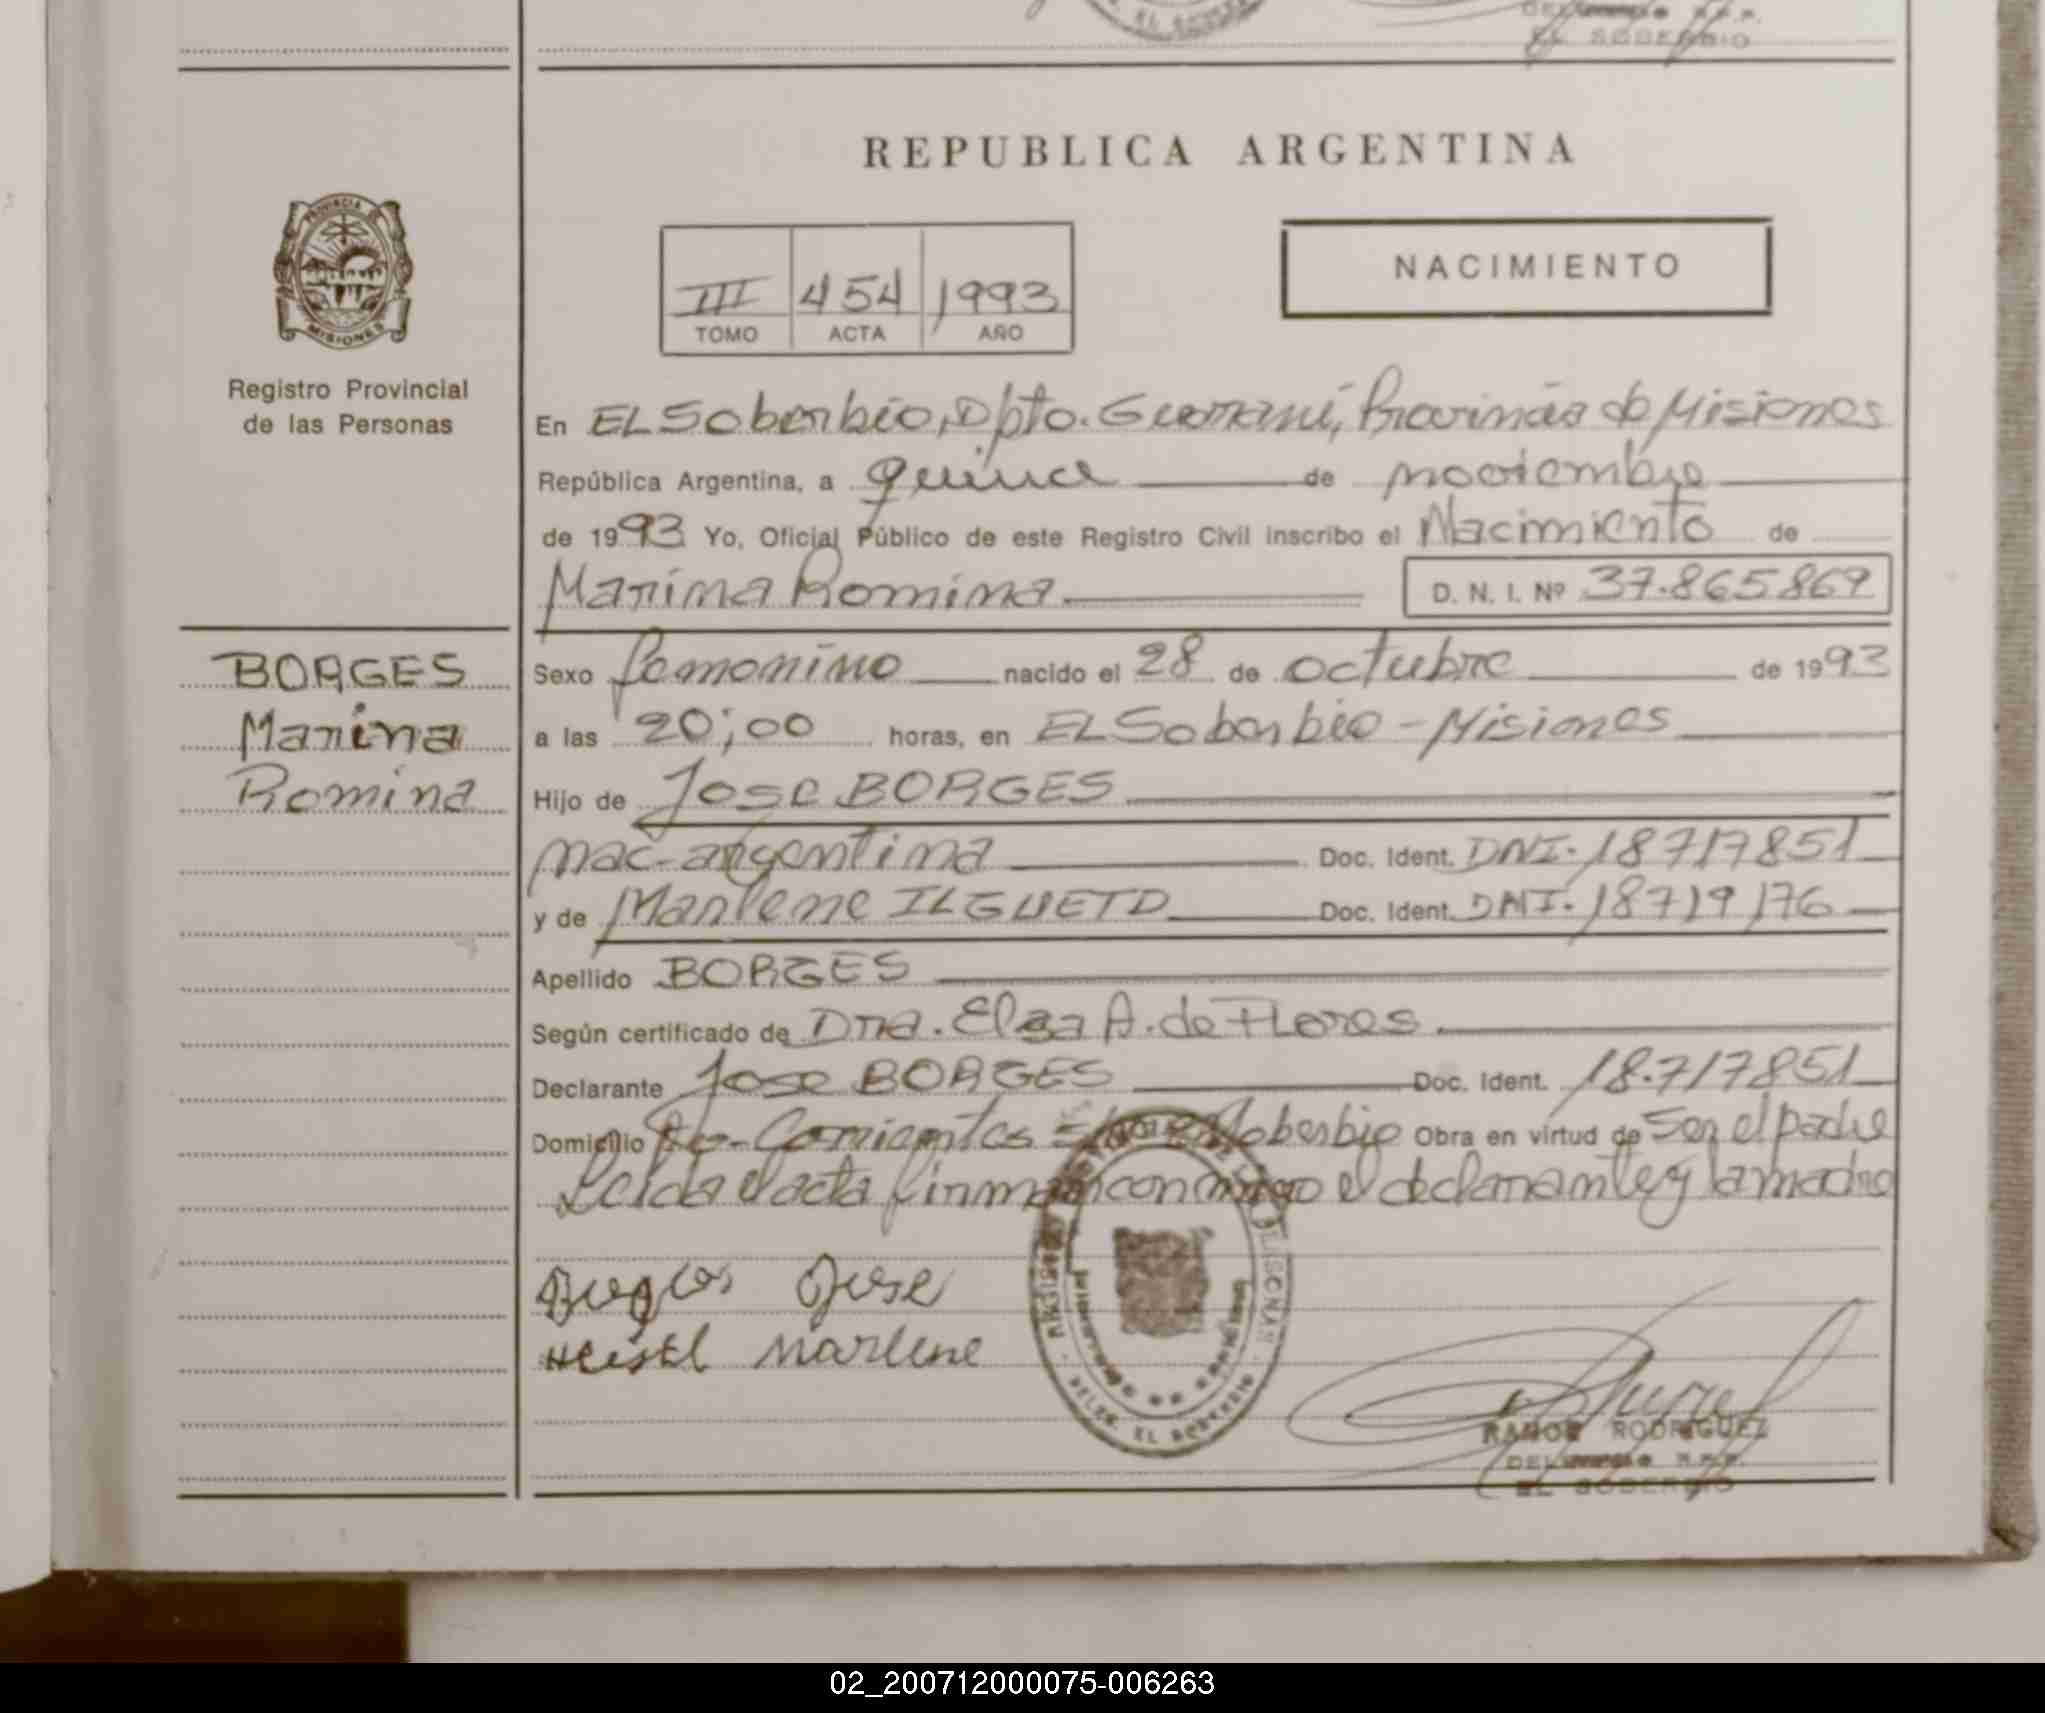 EL SOBERBIO
REPUBLICA ARGENTINA
PROVINCIA DE
MISIONES
Registro Provincial
de las Personas
III 454 1993
TOMO ACTA AÑO
NACIMIENTO
En EL Soberbio, Dpto. Guaraní, Provincia de Misiones
República Argentina, a quince de noviembre
de 1993 Yo, Oficial Público de este Registro Civil inscribo el Nacimiento de
Marina Romina D. N. I. Nº 37.865869
BORGES
Marina
Romina
Sexo femenino nacido el 28 de octubre de 1993
a las 20;00 horas, en EL Soberbio - Misiones
Hijo de Jose BORGES
nac. argentina Doc. Ident. DNI. 18717851
y de Marlene ILGUETD Doc. Ident. DNI. 18719176
Apellido BORGES
Según certificado de Dra. Elsa A. de Flores.
Declarante Jose BORGES Doc. Ident. 18.717851
Domicilio Corrientes Soberbio Obra en virtud de Ser el padre
Leída el acta firman conmigo el declarante y la madre
Jose
Marlene
DELEG. EL SOBERBIO
RAMON RODRIGUEZ
R.P.P.
EL SOBERBIO
02_200712000075-006263